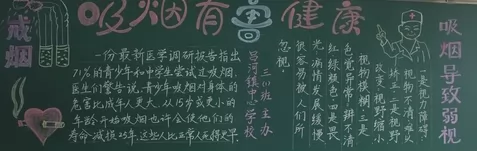 戒烟
吸烟有兽健康
一份最新医学调研报告指出
71%的青少年和中学生尝试过吸烟。
医生们警告说,青少年吸烟对身体的
危害比成年人更大。从15岁或更小的
年龄开始吸烟也许会使他们的
寿命减损25年,这些人比正常人死得更早。
三(1)班主办
吕河镇中心学校
吸烟导致弱视
一是视力障碍,
视物不清难以
矫正二是视野
改变,视野缩小
视物模糊三是
色觉异常,辨不清
红绿颜色四是畏
光,病情发展缓慢
很容易被人们所
忽视。